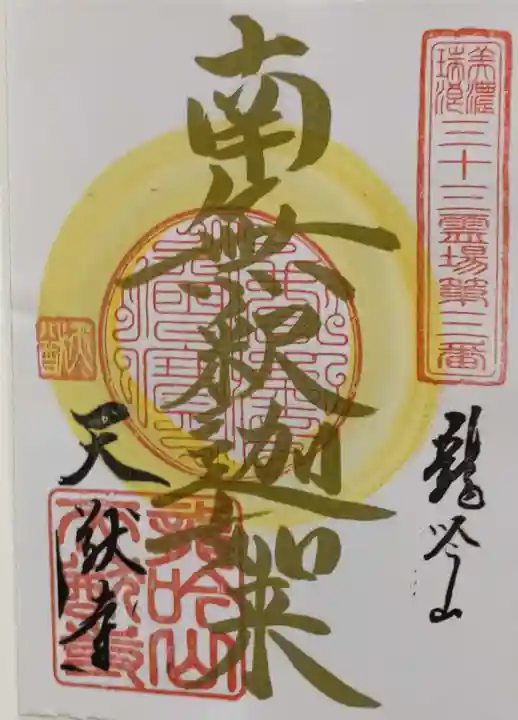 美濃
瑞浪
三十三霊場第二番
龍吟山
南無釈迦如来
天猷寺
龍吟山